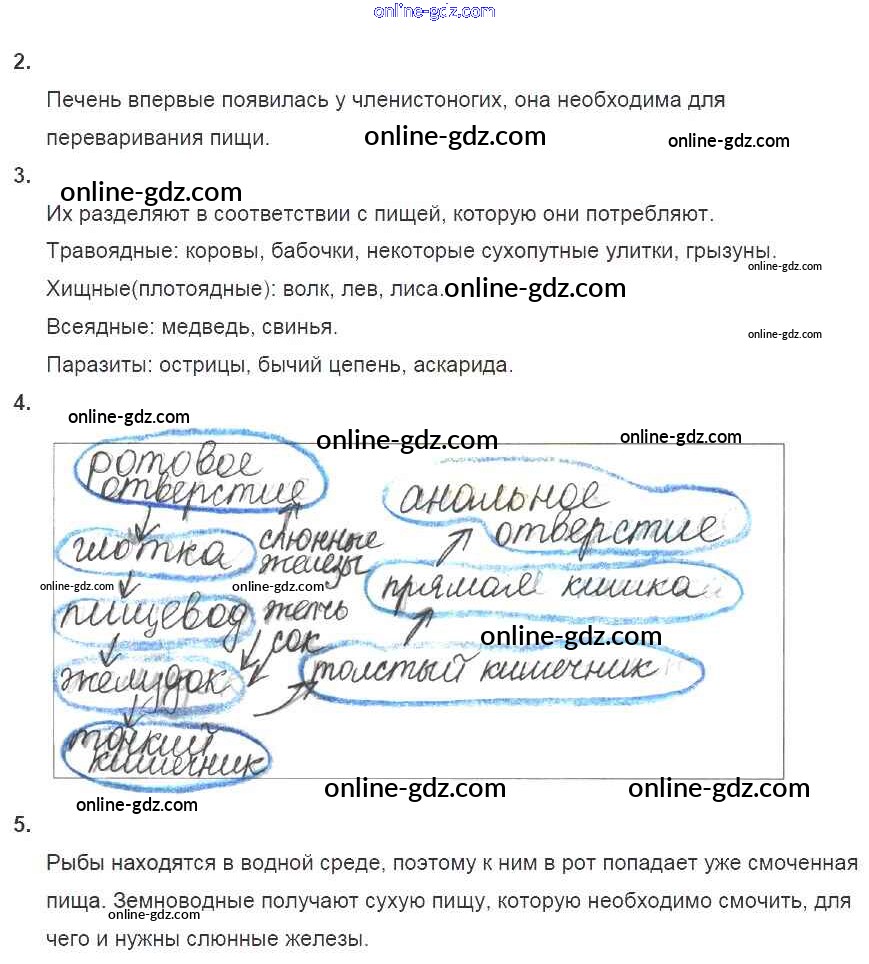 online-gdz.com
2.
Печень впервые появилась у членистоногих, она необходима для
переваривания пищи.
online-gdz.com
online-gdz.com
3.
online-gdz.com
Их разделяют в соответствии с пищей, которую они потребляют.
Травоядные: коровы, бабочки, некоторые сухопутные улитки, грызуны.
online-gdz.com
Хищные(плотоядные): волк, лев, лиса.
online-gdz.com
Всеядные: медведь, свинья.
online-gdz.com
Паразиты: острицы, бычий цепень, аскарида.
4.
online-gdz.com
online-gdz.com
online-gdz.com
ротовое
отверстие
глотка
слюнные
железы
online-gdz.com
online-gdz.com
пищевод
желчь
сок
желудок
тонкий
кишечник
анальное
отверстие
прямая кишка
online-gdz.com
толстый кишечник
online-gdz.com
online-gdz.com
online-gdz.com
5.
Рыбы находятся в водной среде, поэтому к ним в рот попадает уже смоченная
пища. Земноводные получают сухую пищу, которую необходимо смочить, для
online-gdz.com
чего и нужны слюнные железы.